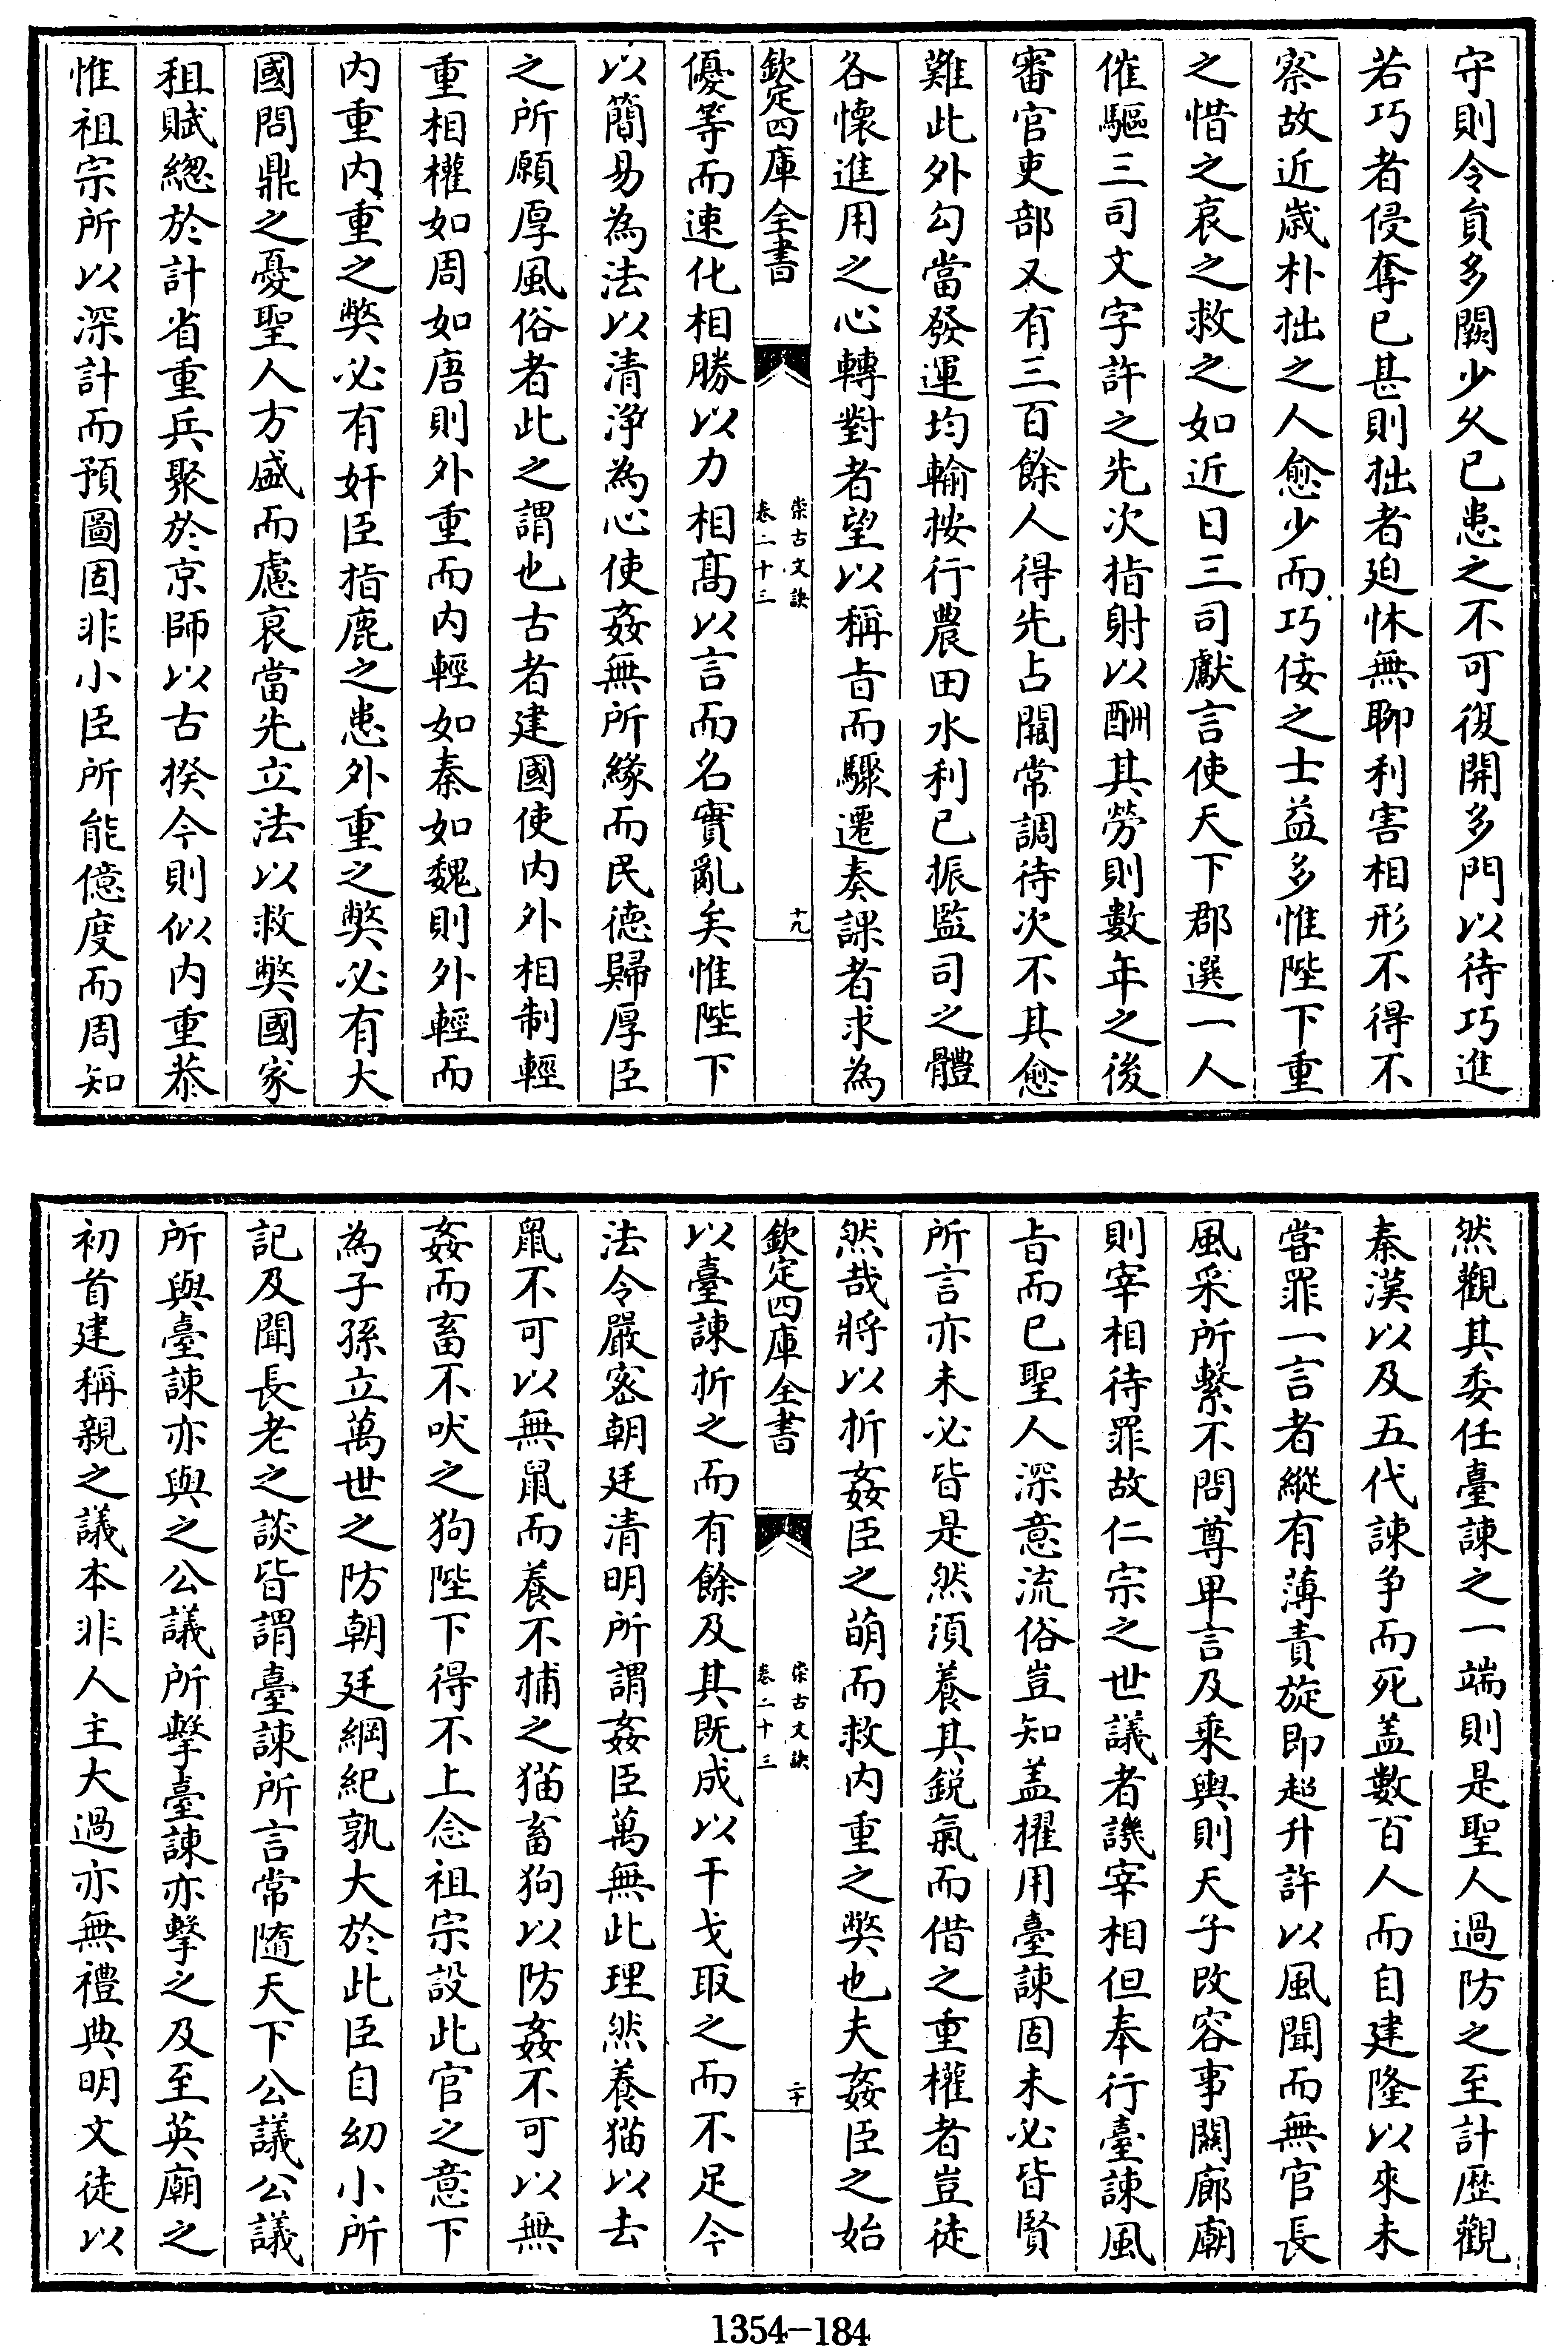 守則令員多闕少久已患之不可復開多門以待巧進
若巧者侵奪已甚則拙者廹怵無聊利害相形不得不
察故近歳朴拙之人愈少而巧佞之士益多惟陛下重
之惜之哀之救之如近日三司獻言使天下郡選一人
催驅三司文字許之先次指射以酬其勞則數年之後
審官吏部又有三百餘人得先占闕常調待次不其愈
難此外勾當發運均輸按行農田水利已振監司之體
各懷進用之心轉對者望以稱㫖而驟遷奏課者求為
欽定四庫全書
崇古文訣
卷二十三
十九
優等而速化相勝以力相髙以言而名實亂矣惟陛下
以簡易為法以清浄為心使姦無所緣而民德歸厚臣
之所願厚風俗者此之謂也古者建國使内外相制輕
重相權如周如唐則外重而内輕如秦如魏則外輕而
内重内重之弊必有奸臣指鹿之患外重之弊必有大
國問鼎之憂聖人方盛而慮衰當先立法以救弊國家
租賦緫於計省重兵聚於京師以古揆今則似内重恭
惟祖宗所以深計而預圖固非小臣所能億度而周知
然觀其委任臺諫之一端則是聖人過防之至計歴觀
秦漢以及五代諫争而死盖數百人而自建隆以來未
甞罪一言者縱有薄責旋即超升許以風聞而無官長
風采所繫不問尊卑言及乘輿則天子改容事闗廊廟
則宰相待罪故仁宗之世議者譏宰相但奉行臺諫風
㫖而已聖人深意流俗豈知盖擢用臺諫固未必皆賢
所言亦未必皆是然須養其鋭氣而借之重權者豈徒
然哉將以折姦臣之萌而救内重之弊也夫姦臣之始
欽定四庫全書
崇古文訣
卷二十三
二十
以臺諫折之而有餘及其既成以干戈取之而不足今
法令嚴宻朝廷清明所謂姦臣萬無此理然養猫以去
鼠不可以無鼠而養不捕之猫畜狗以防姦不可以無
姦而畜不吠之狗陛下得不上念祖宗設此官之意下
為子孫立萬世之防朝廷綱紀孰大於此臣自幼小所
記及聞長老之談皆謂臺諫所言常隨天下公議公議
所與臺諫亦與之公議所擊臺諫亦擊之及至英廟之
初首建稱親之議本非人主大過亦無禮典明文徒以
1354-184